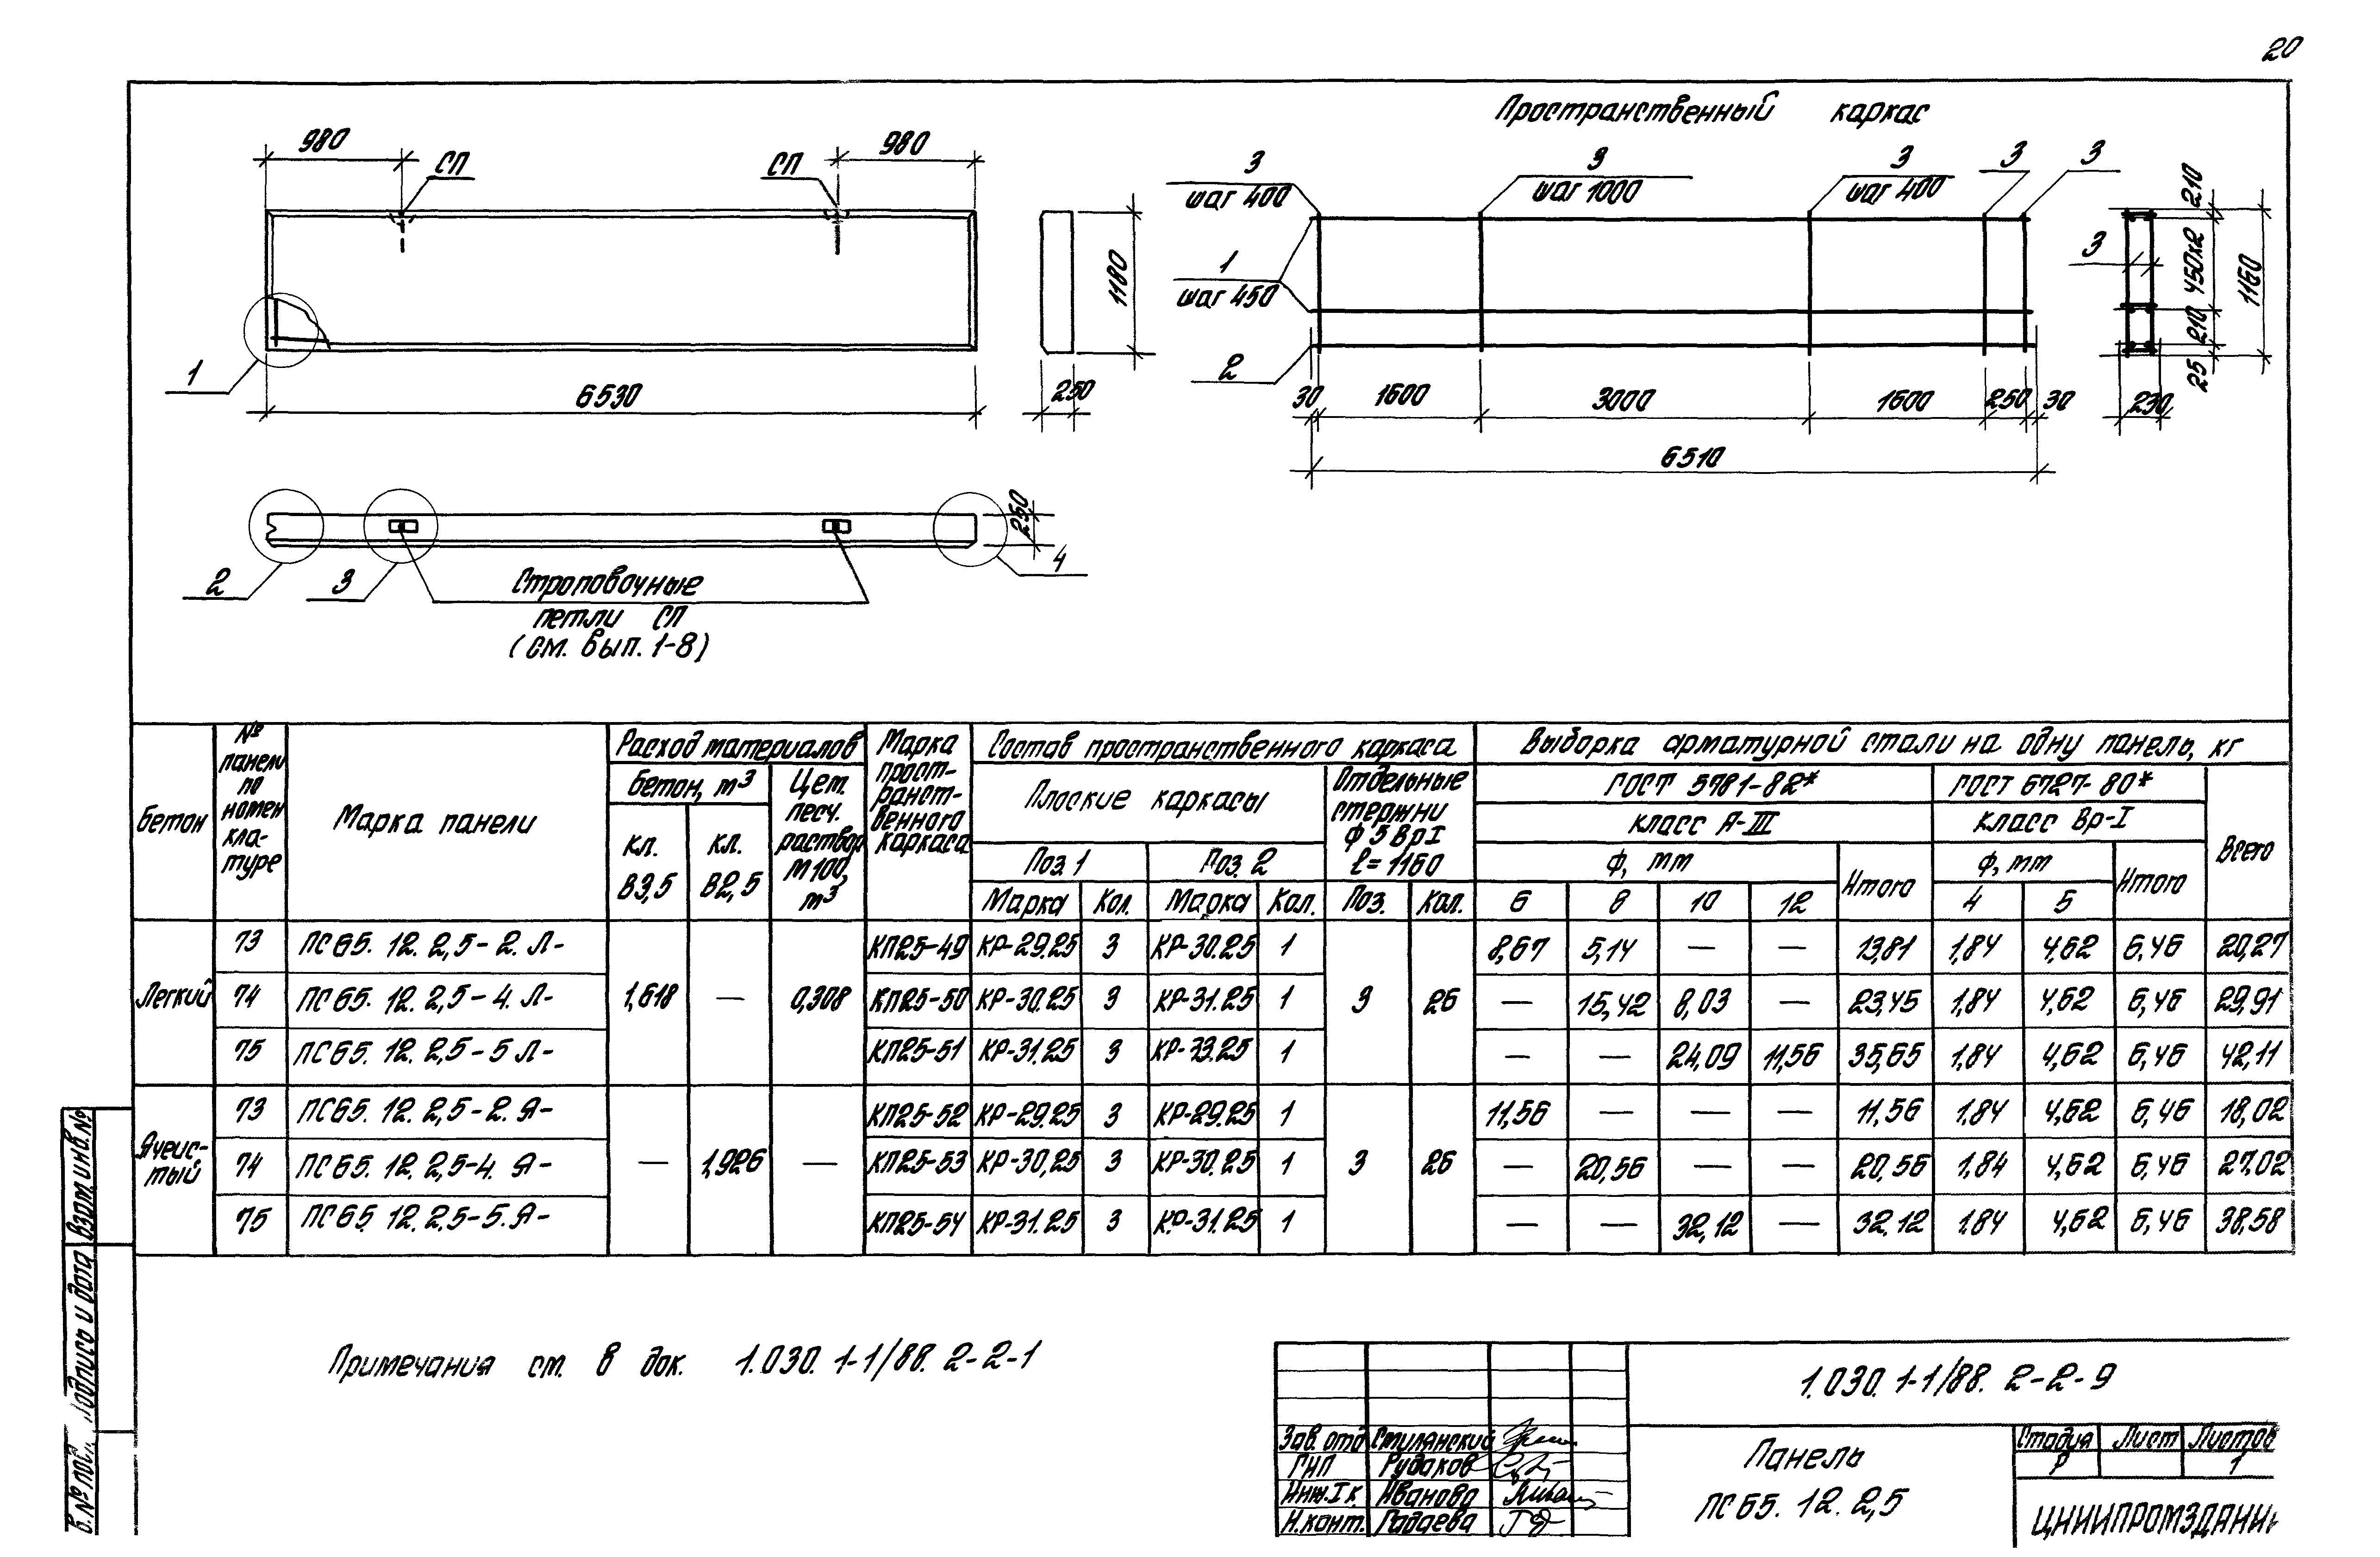 20
Пространственный каркас
980
СП
СП
980
3
шаг 400
3
шаг 1000
3
шаг 400
3
3
210
1180
1
шаг 450
3
450х2
1160
210
25
1
6530
250
2
30
1600
3000
1600
250
30
230
6510
250
2
3
4
Строповочные
петли СП
(см. вып. 1-8)
Бетон
№ панели по номенклатуре
Марка панели
Расход материалов
Бетон, м³
Кл. В3,5
Кл. В2,5
Цем. песч. раствор М100, м³
Марка пространственного каркаса
Состав пространственного каркаса
Плоские каркасы
Поз. 1
Поз. 2
Марка Кол. Марка Кол.
Отдельные стержни ф 5 ВрI ℓ=1160
Поз. Кол.
Выборка арматурной стали на одну панель, кг
ГОСТ 5781-82*
ГОСТ 6727-80*
Класс А-III
Класс Вр-I
ф, мм
Итого
ф, мм
Итого
Всего
6 8 10 12
4 5
Легкий
73 ПС65. 12. 2,5-2. Л- КП25-49 КР-29.25 3 КР-30.25 1 8,67 5,14 — — 13,81 1,84 4,62 6,46 20,27
74 ПС65. 12. 2,5-4. Л- 1,618 — 0,308 КП25-50 КР-30.25 3 КР-31.25 1 3 26 — 15,42 8,03 — 23,45 1,84 4,62 6,46 29,91
75 ПС65. 12. 2,5-5 Л- КП25-51 КР-31.25 3 КР-33.25 1 — — 24,09 11,56 35,65 1,84 4,62 6,46 42,11
Ячеистый
73 ПС65. 12. 2,5-2. Я- КП25-52 КР-29.25 3 КР-29.25 1 11,56 — — — 11,56 1,84 4,62 6,46 18,02
74 ПС65. 12. 2,5-4. Я- — 1,926 — КП25-53 КР-30,25 3 КР-30.25 1 3 26 — 20,56 — — 20,56 1,84 4,62 6,46 27,02
75 ПС65 12. 2,5-5. Я- КП25-54 КР-31.25 3 КР-31.25 1 — — 32,12 — 32,12 1,84 4,62 6,46 38,58
Примечания см. в док. 1.030.1-1/88. 2-2-1
1.030.1-1/88. 2-2-9
Зав. отд Смилянский
ГИП Рудаков
Инж. I к Иванова
Н.конт. Гадаева
Панель
ПС65. 12. 2,5
Стадия Лист Листов
Р 1
ЦНИИПРОМЗДАНИ
Взам. инв. №
Подпись и дата
в. № под.